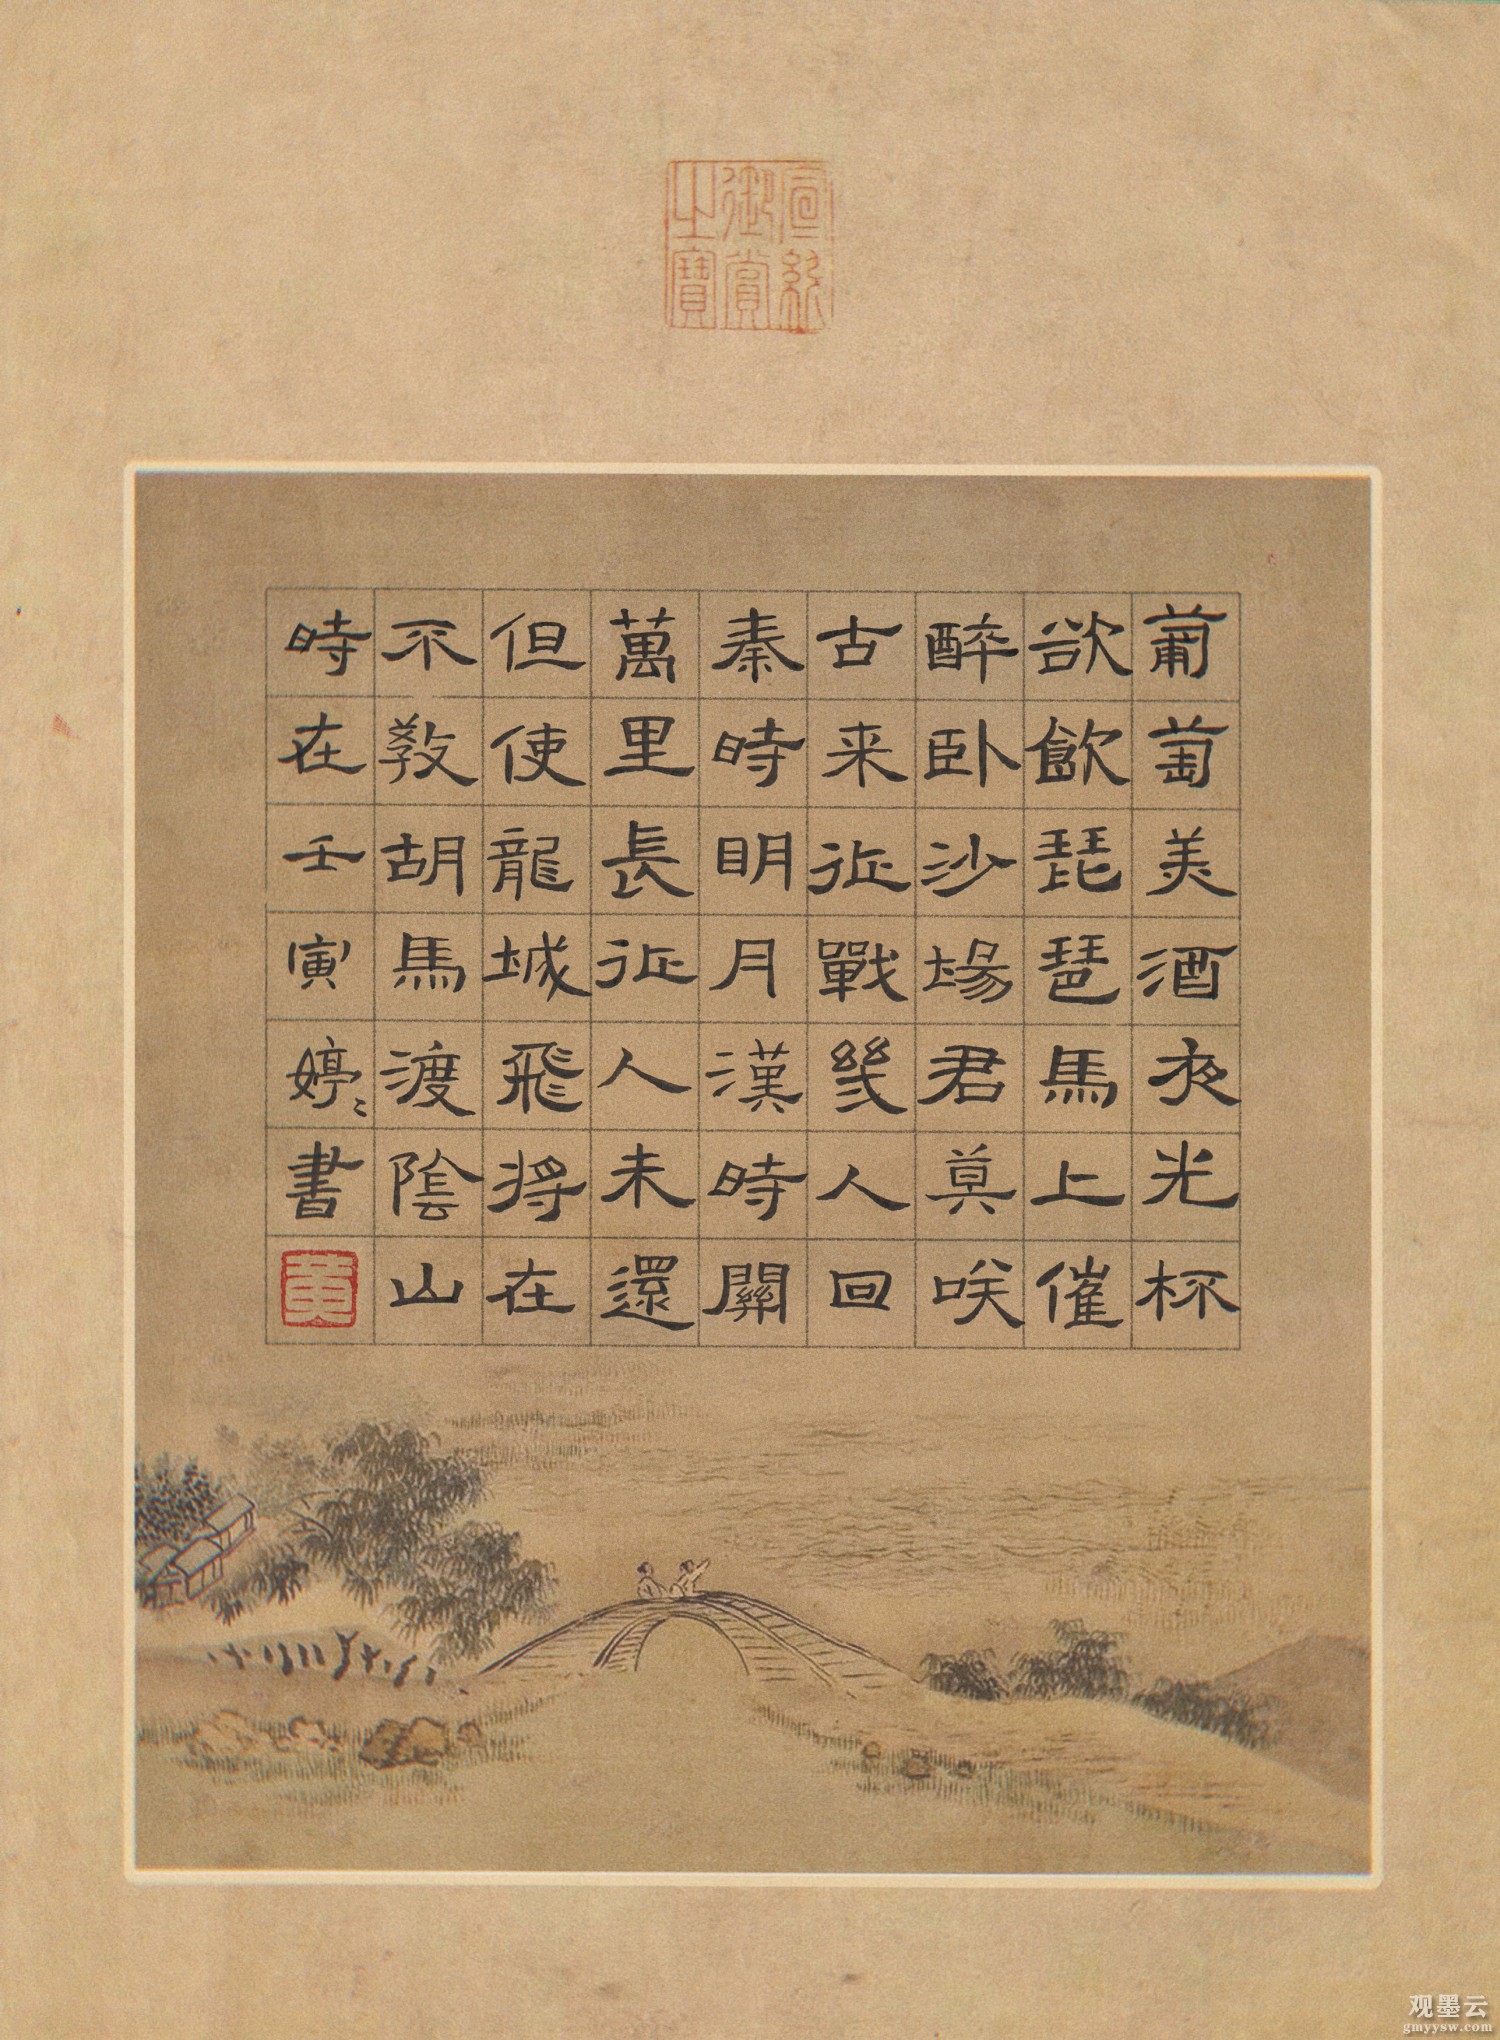 宣統
御賞
之寶
葡萄美酒夜光杯
欲飲琵琶馬上催
醉臥沙場君莫咲
古来征戰幾人回
秦時明月漢時關
萬里長征人未還
但使龍城飛將在
不教胡馬渡陰山
時在壬寅婷婷書
黄
观墨云
gmyysw.com